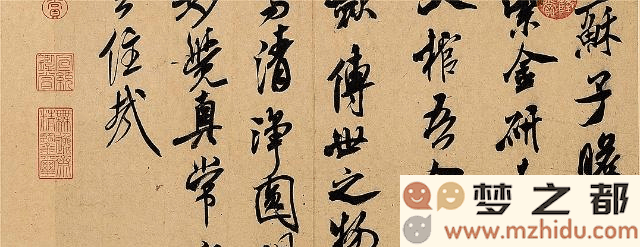 蘇子瞻
紫金研
棺吾
斂傳世之物
清淨圓
妙覺真常
住哉
梦之都
www.mzhidu.com